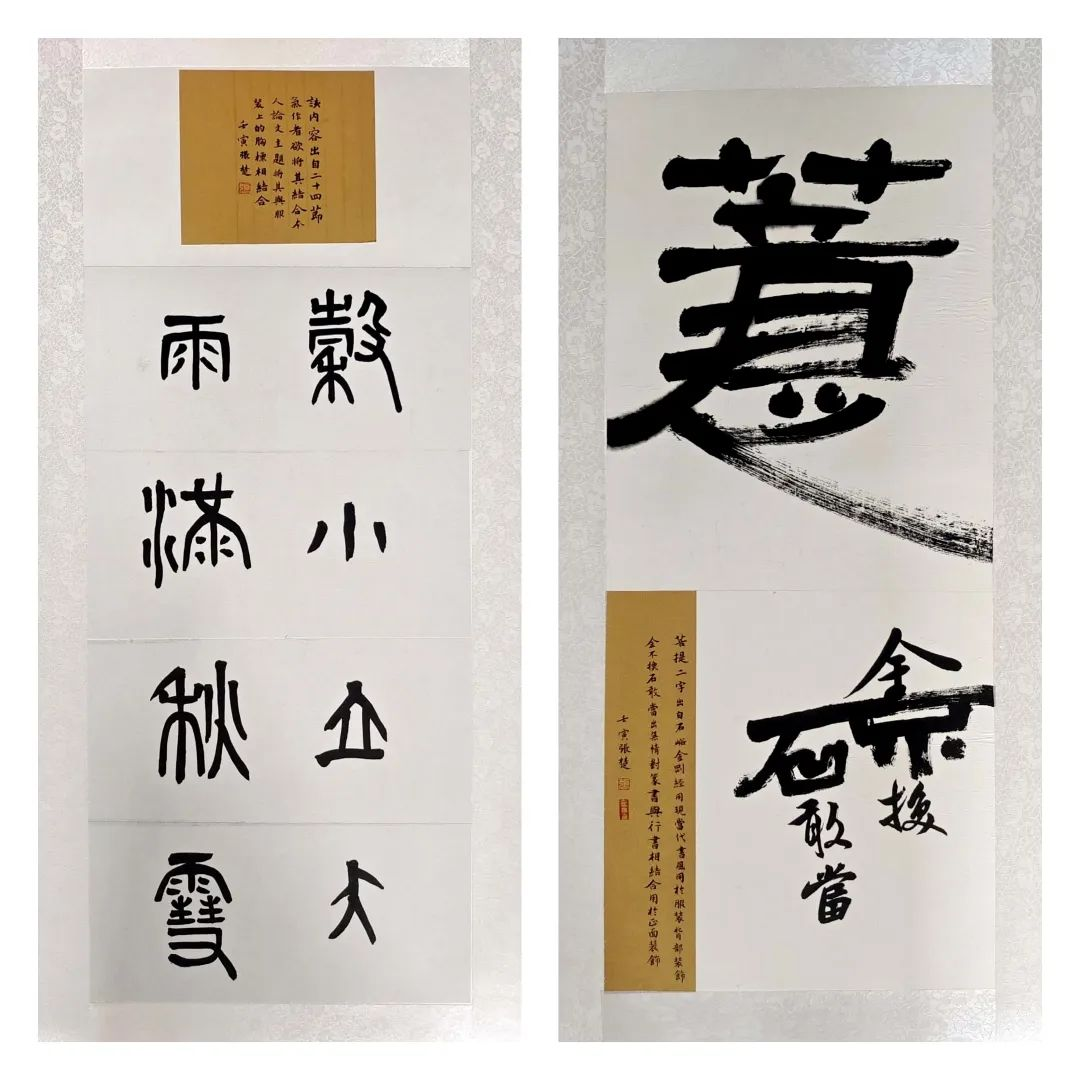 該内容出自二十四節
氣作者欲將其結合本
人論文主題將其與服
裝上的胸標相結合
壬寅張楚
穀雨
小滿
立秋
大雪
金不換
石敢當
菩提二字出自石峪金剛經用現當代書風用於服裝背部裝飾
金不換石敢當出集情對篆書與行書相結合用於正面裝飾
壬寅張楚